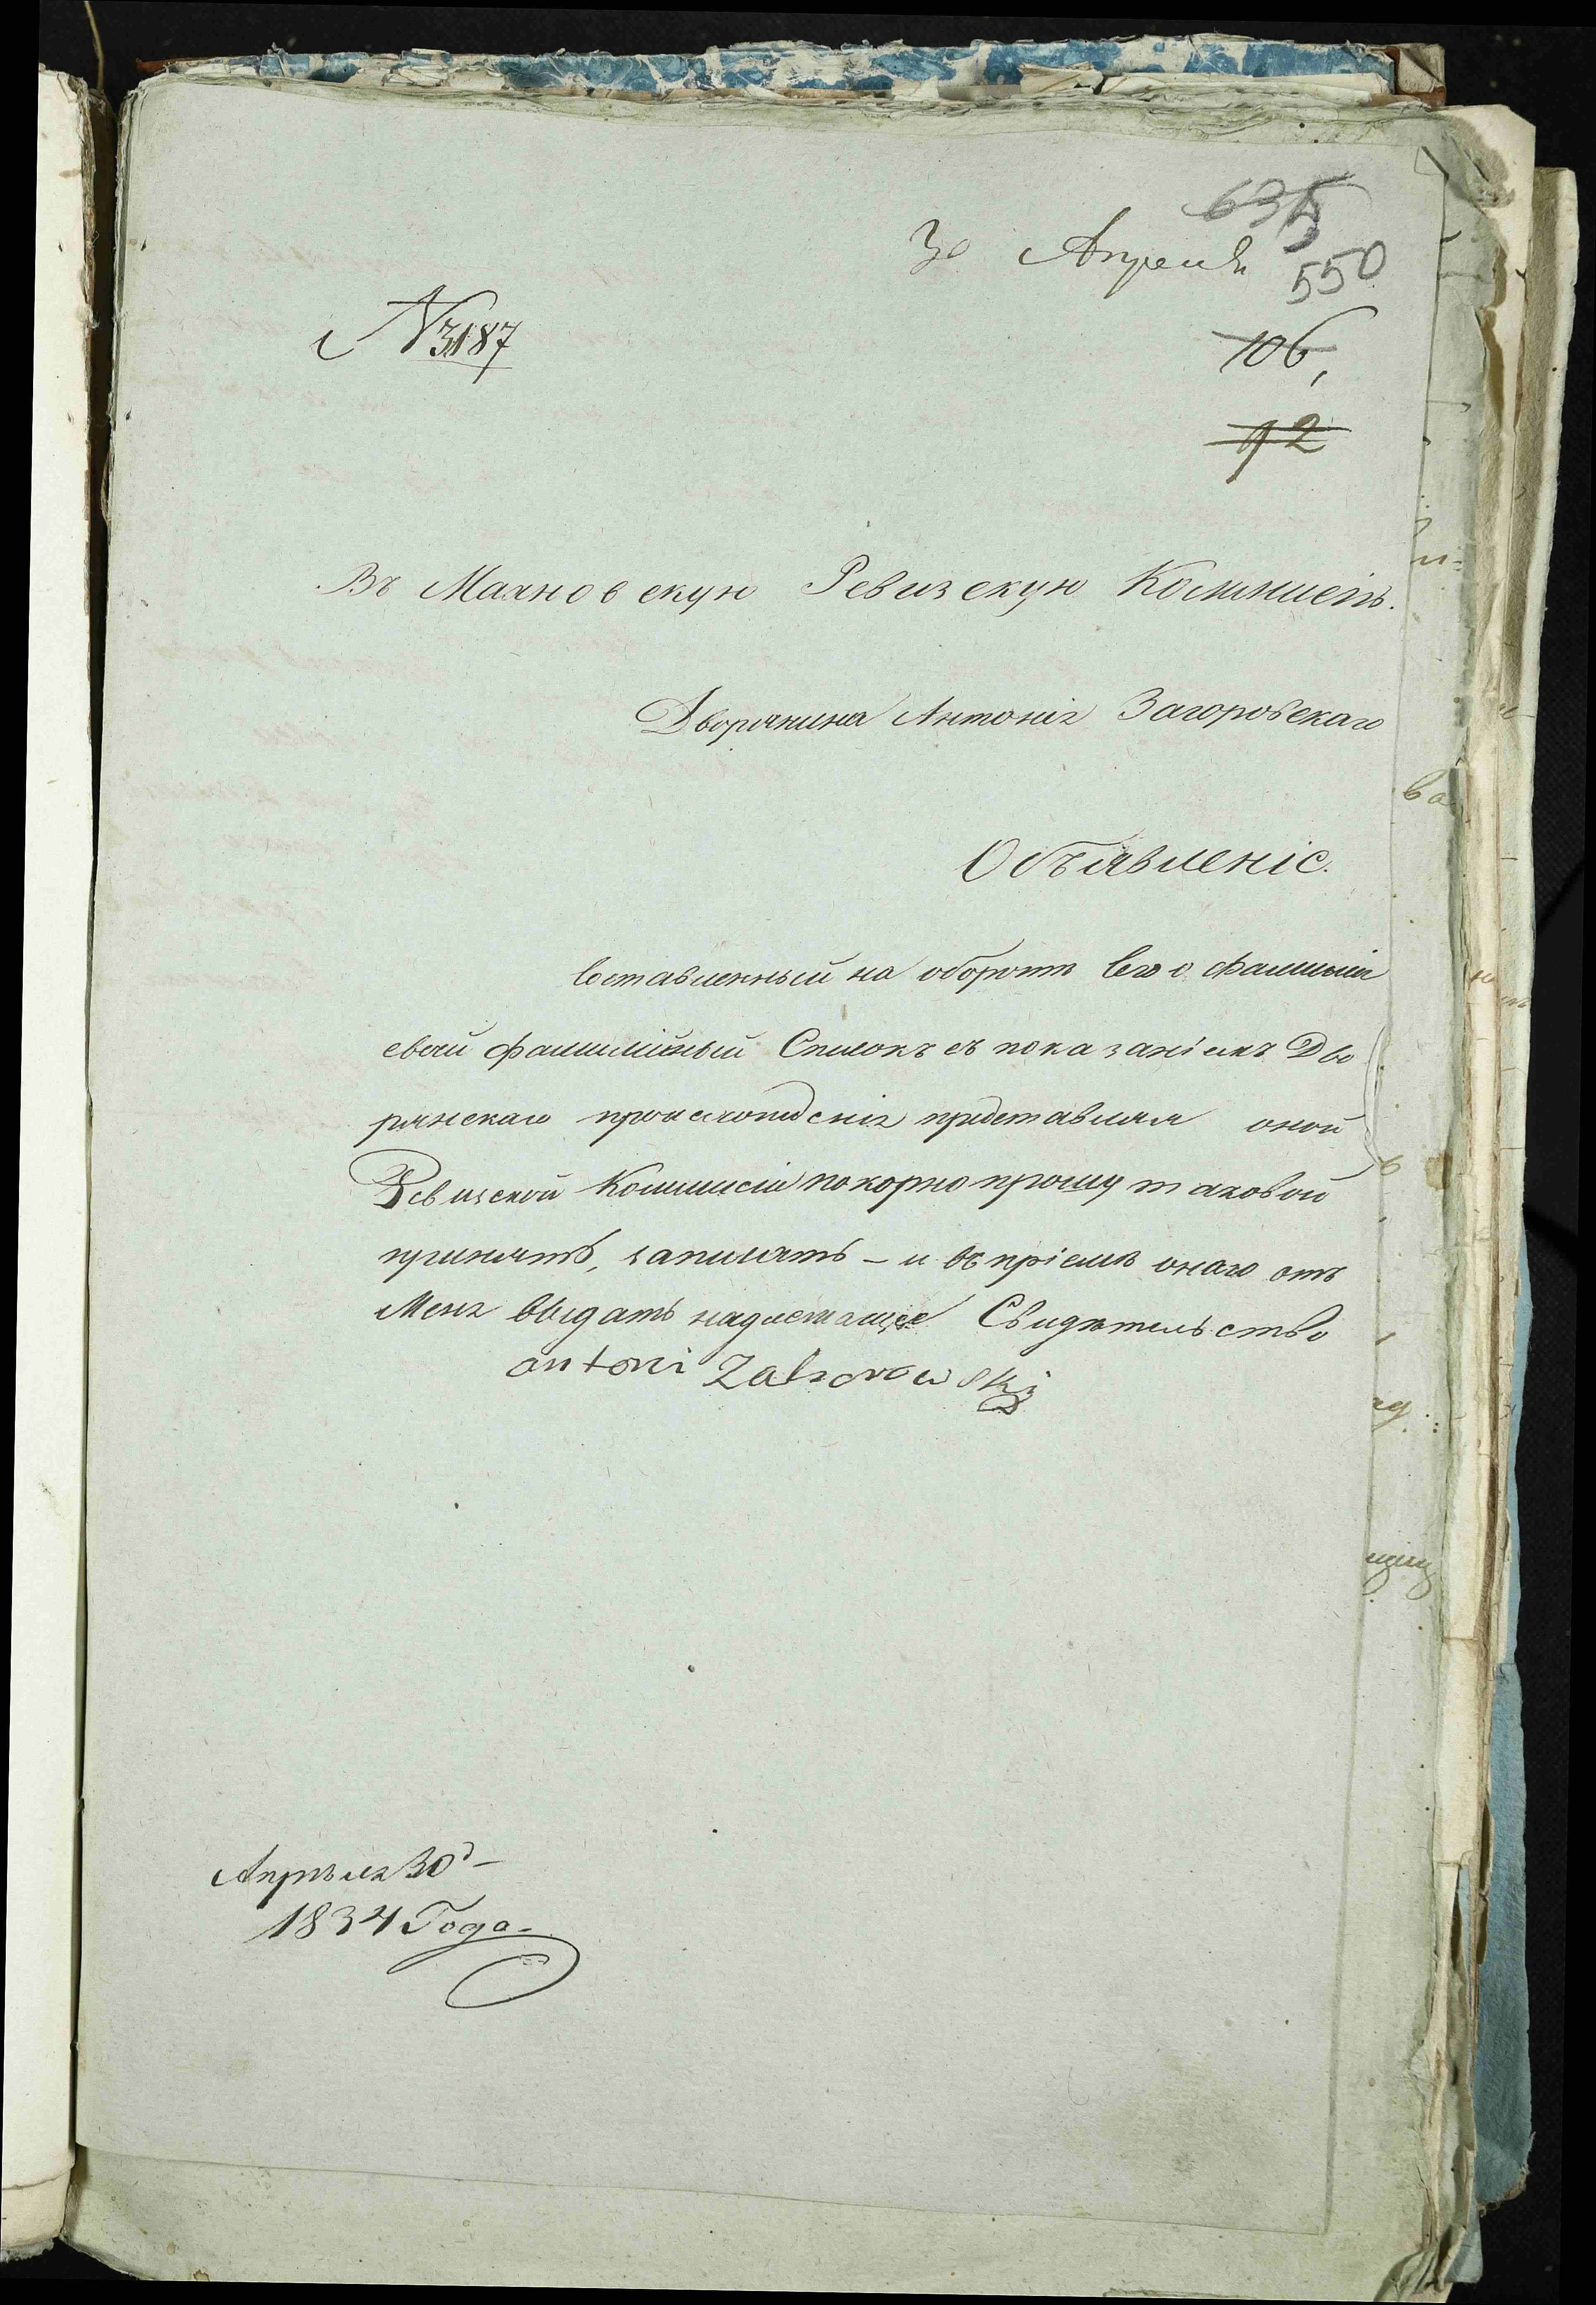 635
30 Апреля
550
№ 3187
106,
92
Въ Махновскую Ревизскую Коммисію.
Дворянина Антонія Загоровскаго
Объявленіе.
Составленный на оборотѣ сего о фамиліи
своей фамилійный Списокъ съ показаніемъ Дво
рянскаго происхожденія представляя оной
Ревизской Коммисіи покорно прошу таковой
принять, записать – и въ пріемѣ онаго отъ
Меня выдать надлежащее Свидѣтельство
antoni
Апрѣля 30 –
1834 Года.